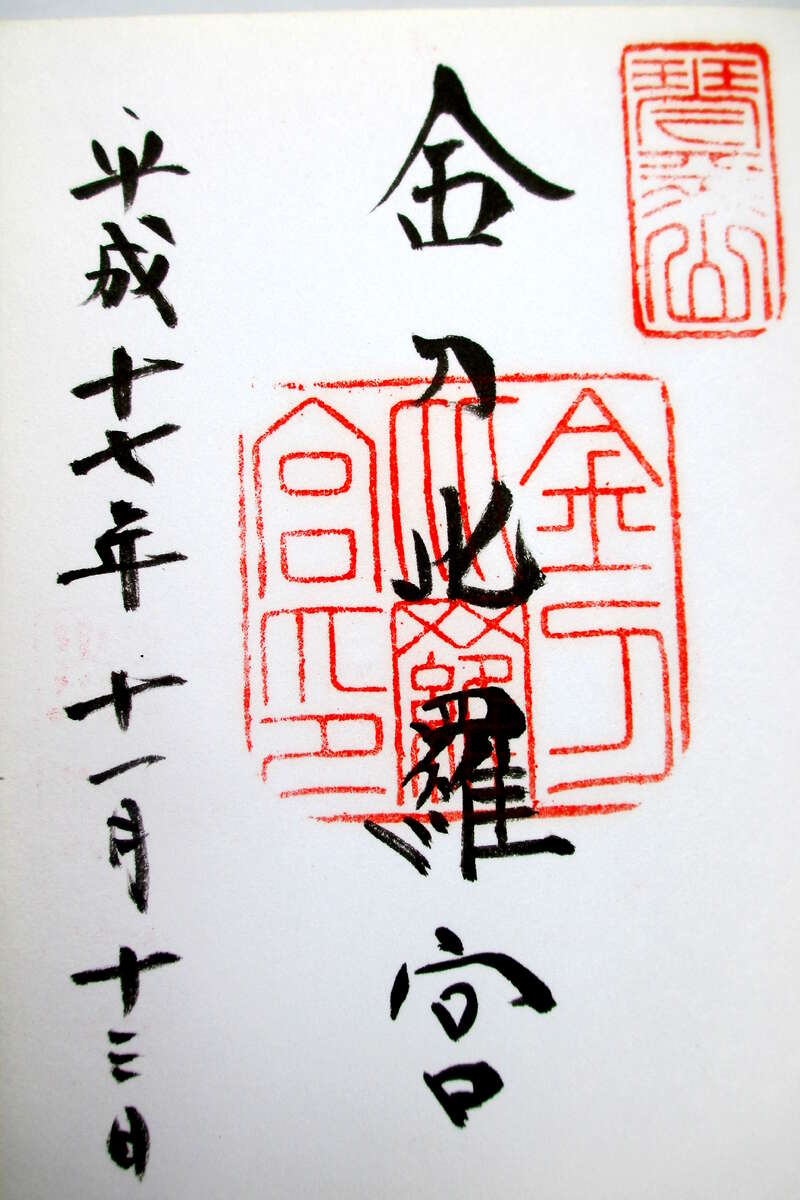 琴平山
金刀比羅宮
金刀比羅宮印
平成十七年十一月十三日